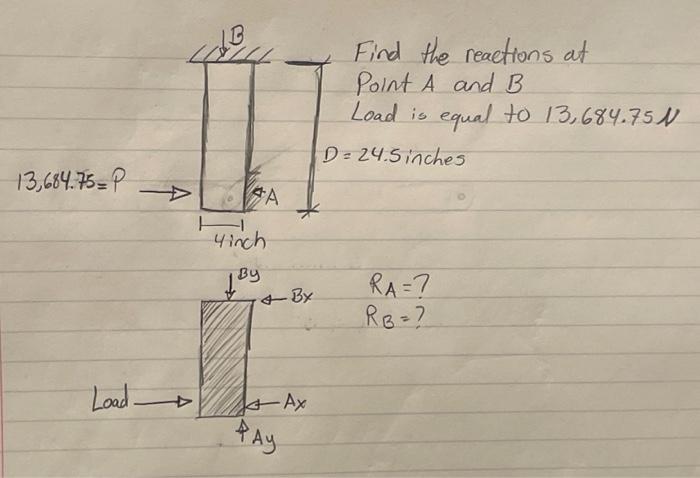 B
Find the reactions at
Point A and B
Load is equal to 13,684.75N
D = 24.5 inches
13,684.75 = P
A
4 inch
By
Bx
RA = ?
RB = ?
Load
Ax
Ay